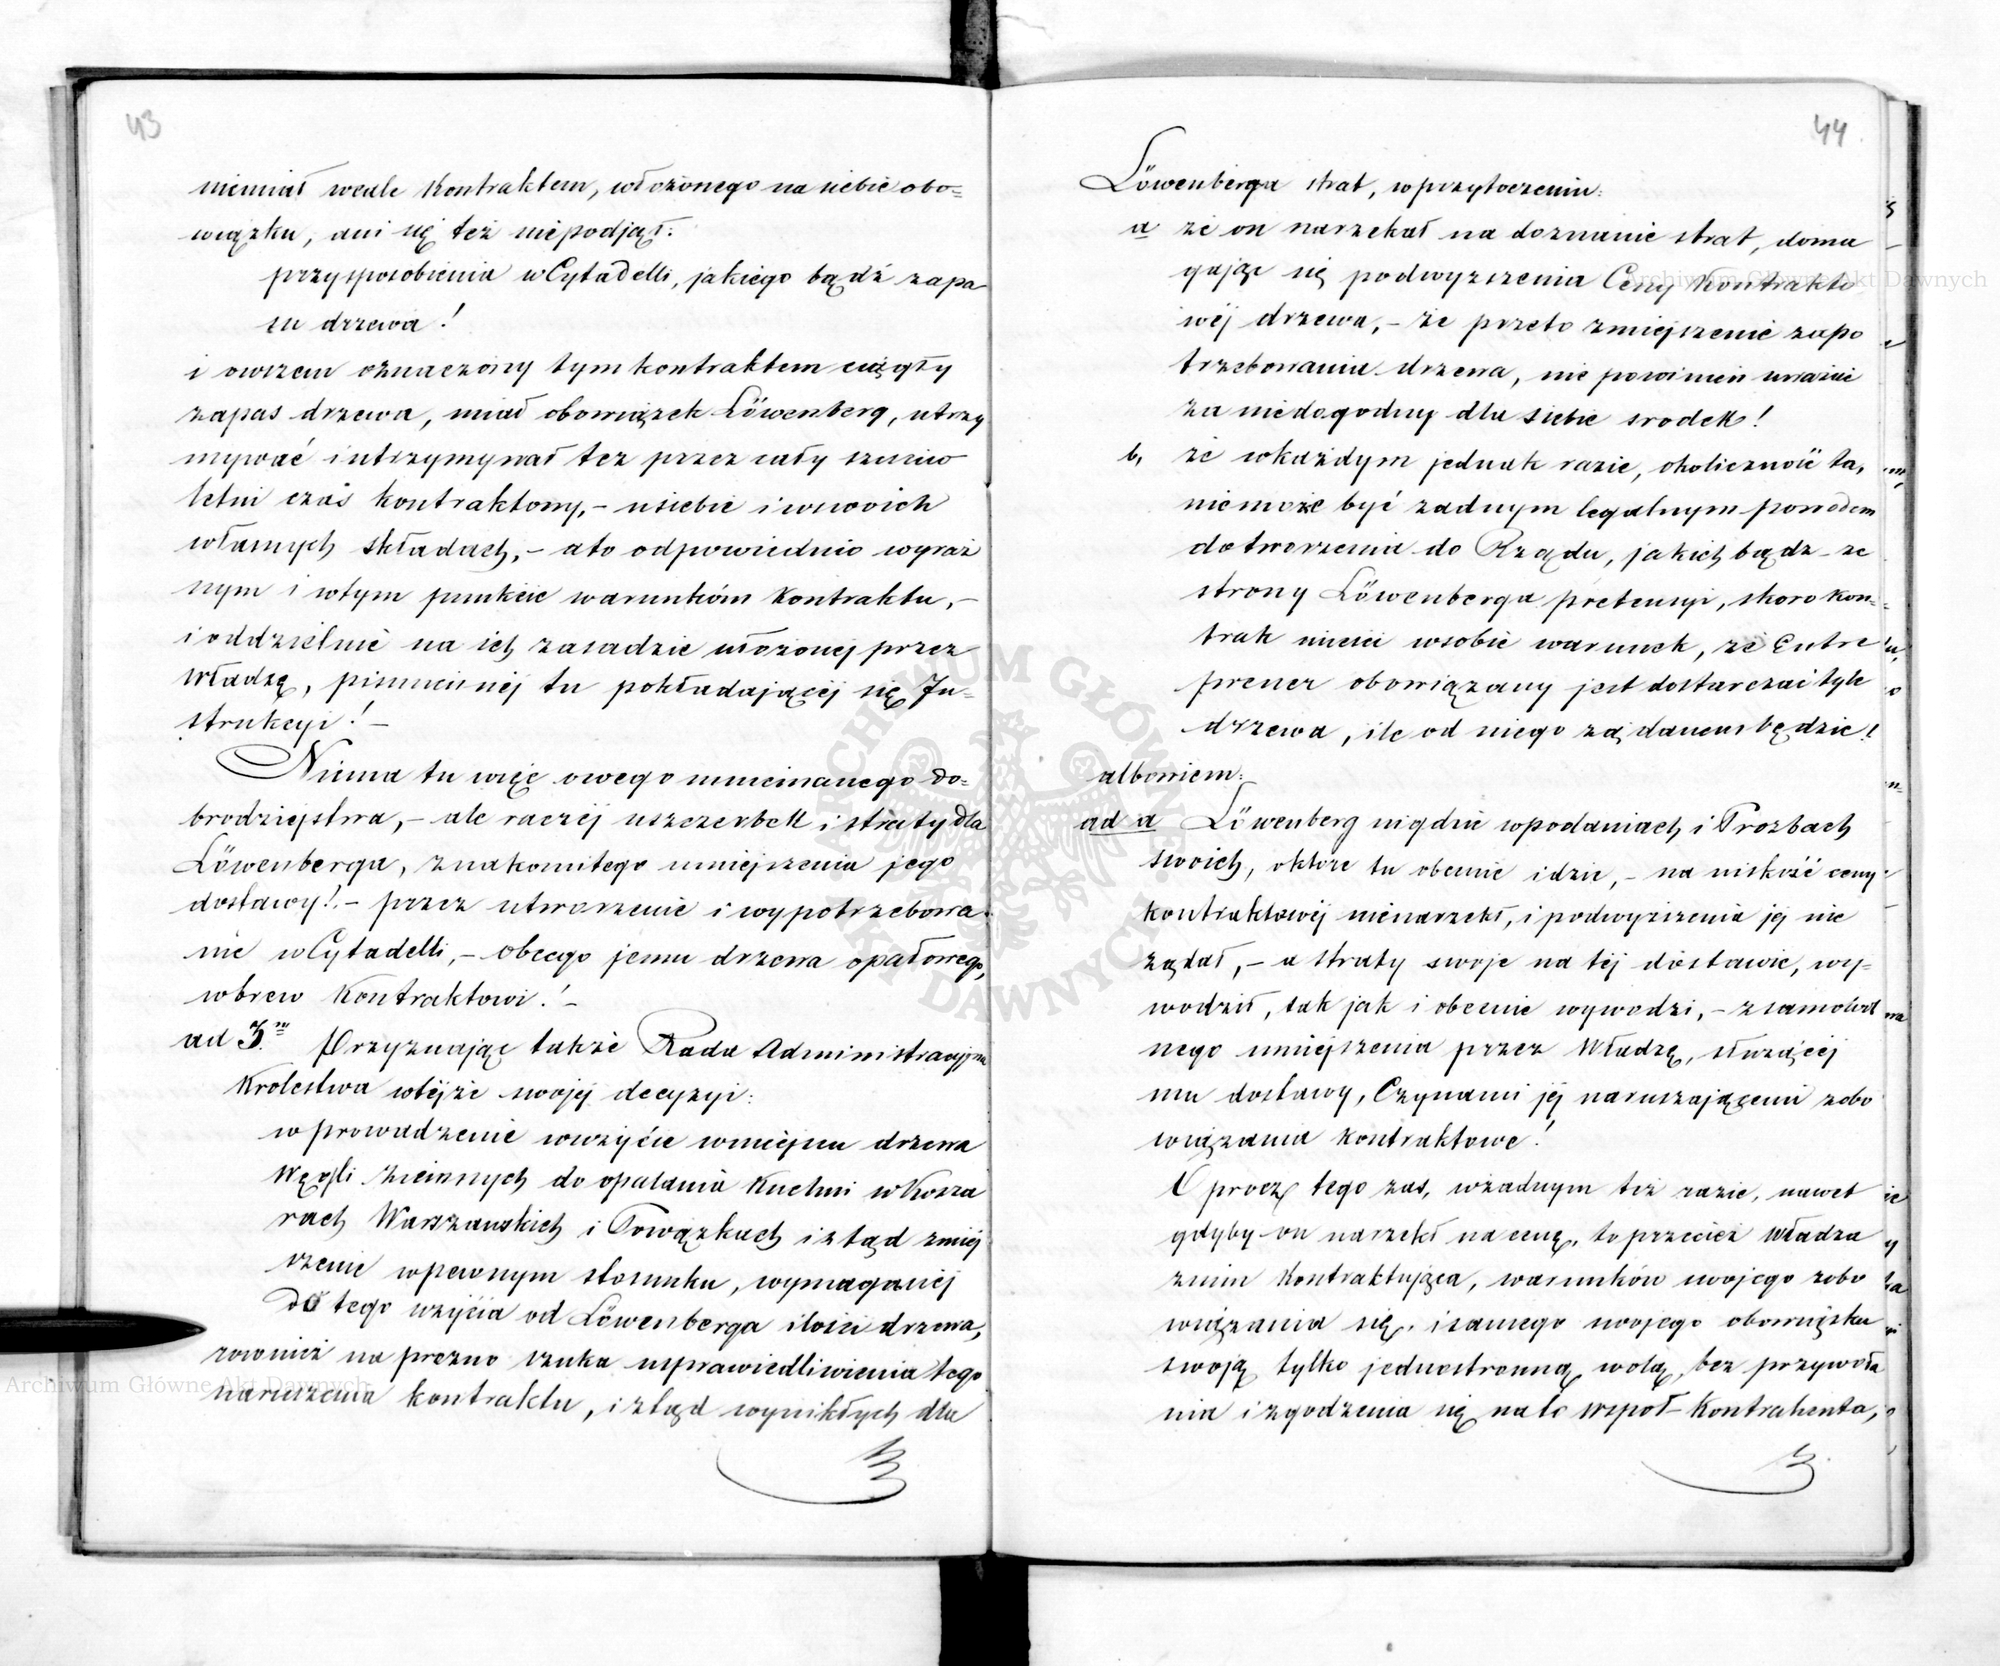 43
niemiał wcale Kontraktem, włożonego na siebie obo=
wiązku, ani się też niepodjął:
przysposobienia w Cytadelli, jakiego bądź zapa
su drzewa!
i owszem oznaczony tym kontraktem ciągły
zapas drzewa, miał obowiązek Löwenberg, utrzy
mywać i utrzymywał tez przez cały sześcio
letni czas kontraktowy, – u siebie i w swoich
własnych składach, – a to odpowiednio wyraź
nym i w tym punkcie warunkóm Kontraktu, –
i oddzielnie na ich zasadzie ułożonej przez
Władzę, pismiennéj tu pokładającéj się In=
strukcyi! –
Niema tu więc owego mniemanego do=
brodziejstwa, – ale raczéj uszczerbek i straty dla
Löwenberga, znakomitego umiejszenia jego
dostawy! – przez utworzenie i wypotrzebowa=
nie w Cytadelli, – obcego jemu drzewa opałowego,
wbrew Kontraktowi! –
ad 3. Przyznając także Rada Administracyjna
Krolestwa w téjże swojéj decyzyi:
wprowadzenie w użycie w miejscu drzewa
Węgli ziemnych do opalania Kuchni w Kosza
rach Warszawskich i Powązkach i ztąd zmiéj
szenie w pewnym stosunku, wymaganéj
do tego użycia od Löwenberga ilości drzewa,
rownież na prożno szuka usprawiedliwienia tego
naruszenia kontraktu, i ztąd wynikłych dla
44
Löwenberga strat, w przytoczeniu:
a że on narzekał na doznanie strat, doma
gając się podwyższenia Ceny Kontrakto
wéj drzewa, – że przeto zmiejszenie zapo
trzebowania drzewa, nie powinien uważać
za niedogodny dla siebie srodek!
b, że w każdym jednak razie, okoliczność ta,
niemoże być żadnym legalnym powodem
do tworzenia do Rządu, jakich bądz ze
strony Löwenberga pretensyi, skoro kon=
trak mieści w sobie warunek, że Entre
prener obowiązany jest dostarczać tyle
drzewa, ile od niego żądanem będzie!
albowiem:
ad a Löwenberg nigdzie w podaniach i Prozbach
swoich, o które tu obecnie idzie, – na niskość ceny
kontraktowéj nienarzekł, i podwyższenia jéj nie
żądał, – a straty swoje na téj dostawie, wy=
wodził, tak jak i obecnie wywodzi, – z samowol
nego umiejszenia przez Władzę, służącéj
mu dostawy, Czynami jéj naruszającemi zobo
wiązania kontraktowe!
Oprocz tego zas, w żadnym też razie, nawet
gdyby on narzekł na cenę, to przecież Władza
z nim Kontraktująca, warunków swojego zobo
wiązania się, i samego swojego obowiązku
swoją tylko jednostronną wolą, bez przywoła
nia i zgodzenia się na to współ-Kontrahenta,
Archiwum Główne Akt Dawnych
Archiwum Główne Akt Dawnych
ARCHIWUM GŁÓWNE AKT DAWNYCH